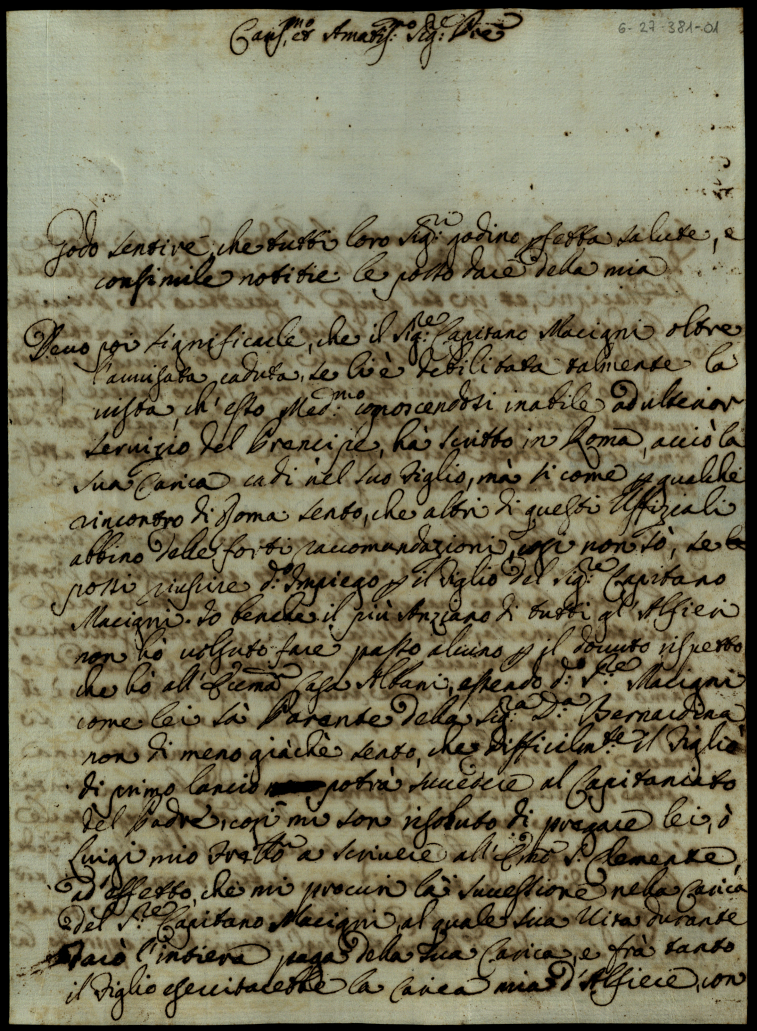 6-27-381-01
Cariss.mo et Amatiss.mo Sig.re Pre
Godo sentire, che tutti loro Sig.ri godino pfetta salute, e
consimile notitie le posso dare della mia
Devo poi significarle, che il Sig.re Capitano Macigni oltre
l'auuisata caduta, se li è debilitata talmente la
uista, ch'esso Med.mo conoscendosi inabile ad ulterior
seruizio del Prencipe, hà scritto in Roma, acciò la
sua Carica cadi nel suo Figlio, mà si come p qualche
rincontro di Roma sento, che altri di questi Uffiziali
abbino delle forti raccomandazioni, così non sò, se le
possi riuscire d.o Impiego p il Figlio del Sig.re Capitano
Macigni. Io benche il più Anziano di tutti gl'Alfieri
non hò uolsuto fare passo alcuno p il douuto rispetto
che hò all'Ecc.ma Casa Albani, essendo d.o S.re Macigni
come lei sà Parente della Sig.ra D.a Bernardina
non di meno giàchè sento, che difficilm.te il Figlio
di primo lancio potrà succedere al Capitaniato
del Padre, così mi son risoluto di pregare lei, ò
Luigi mio Fratello a scriuere all'Em.o S.r Clemente,
ad'effetto, che mi procuri la successione nella Carica
del S.re Capitano Macigni, al quale sua Uita durante
darò l'intiera paga della sua Carica, e frà tanto
il Figlio essercitarebbe la Carica mia d'Alfiere, con